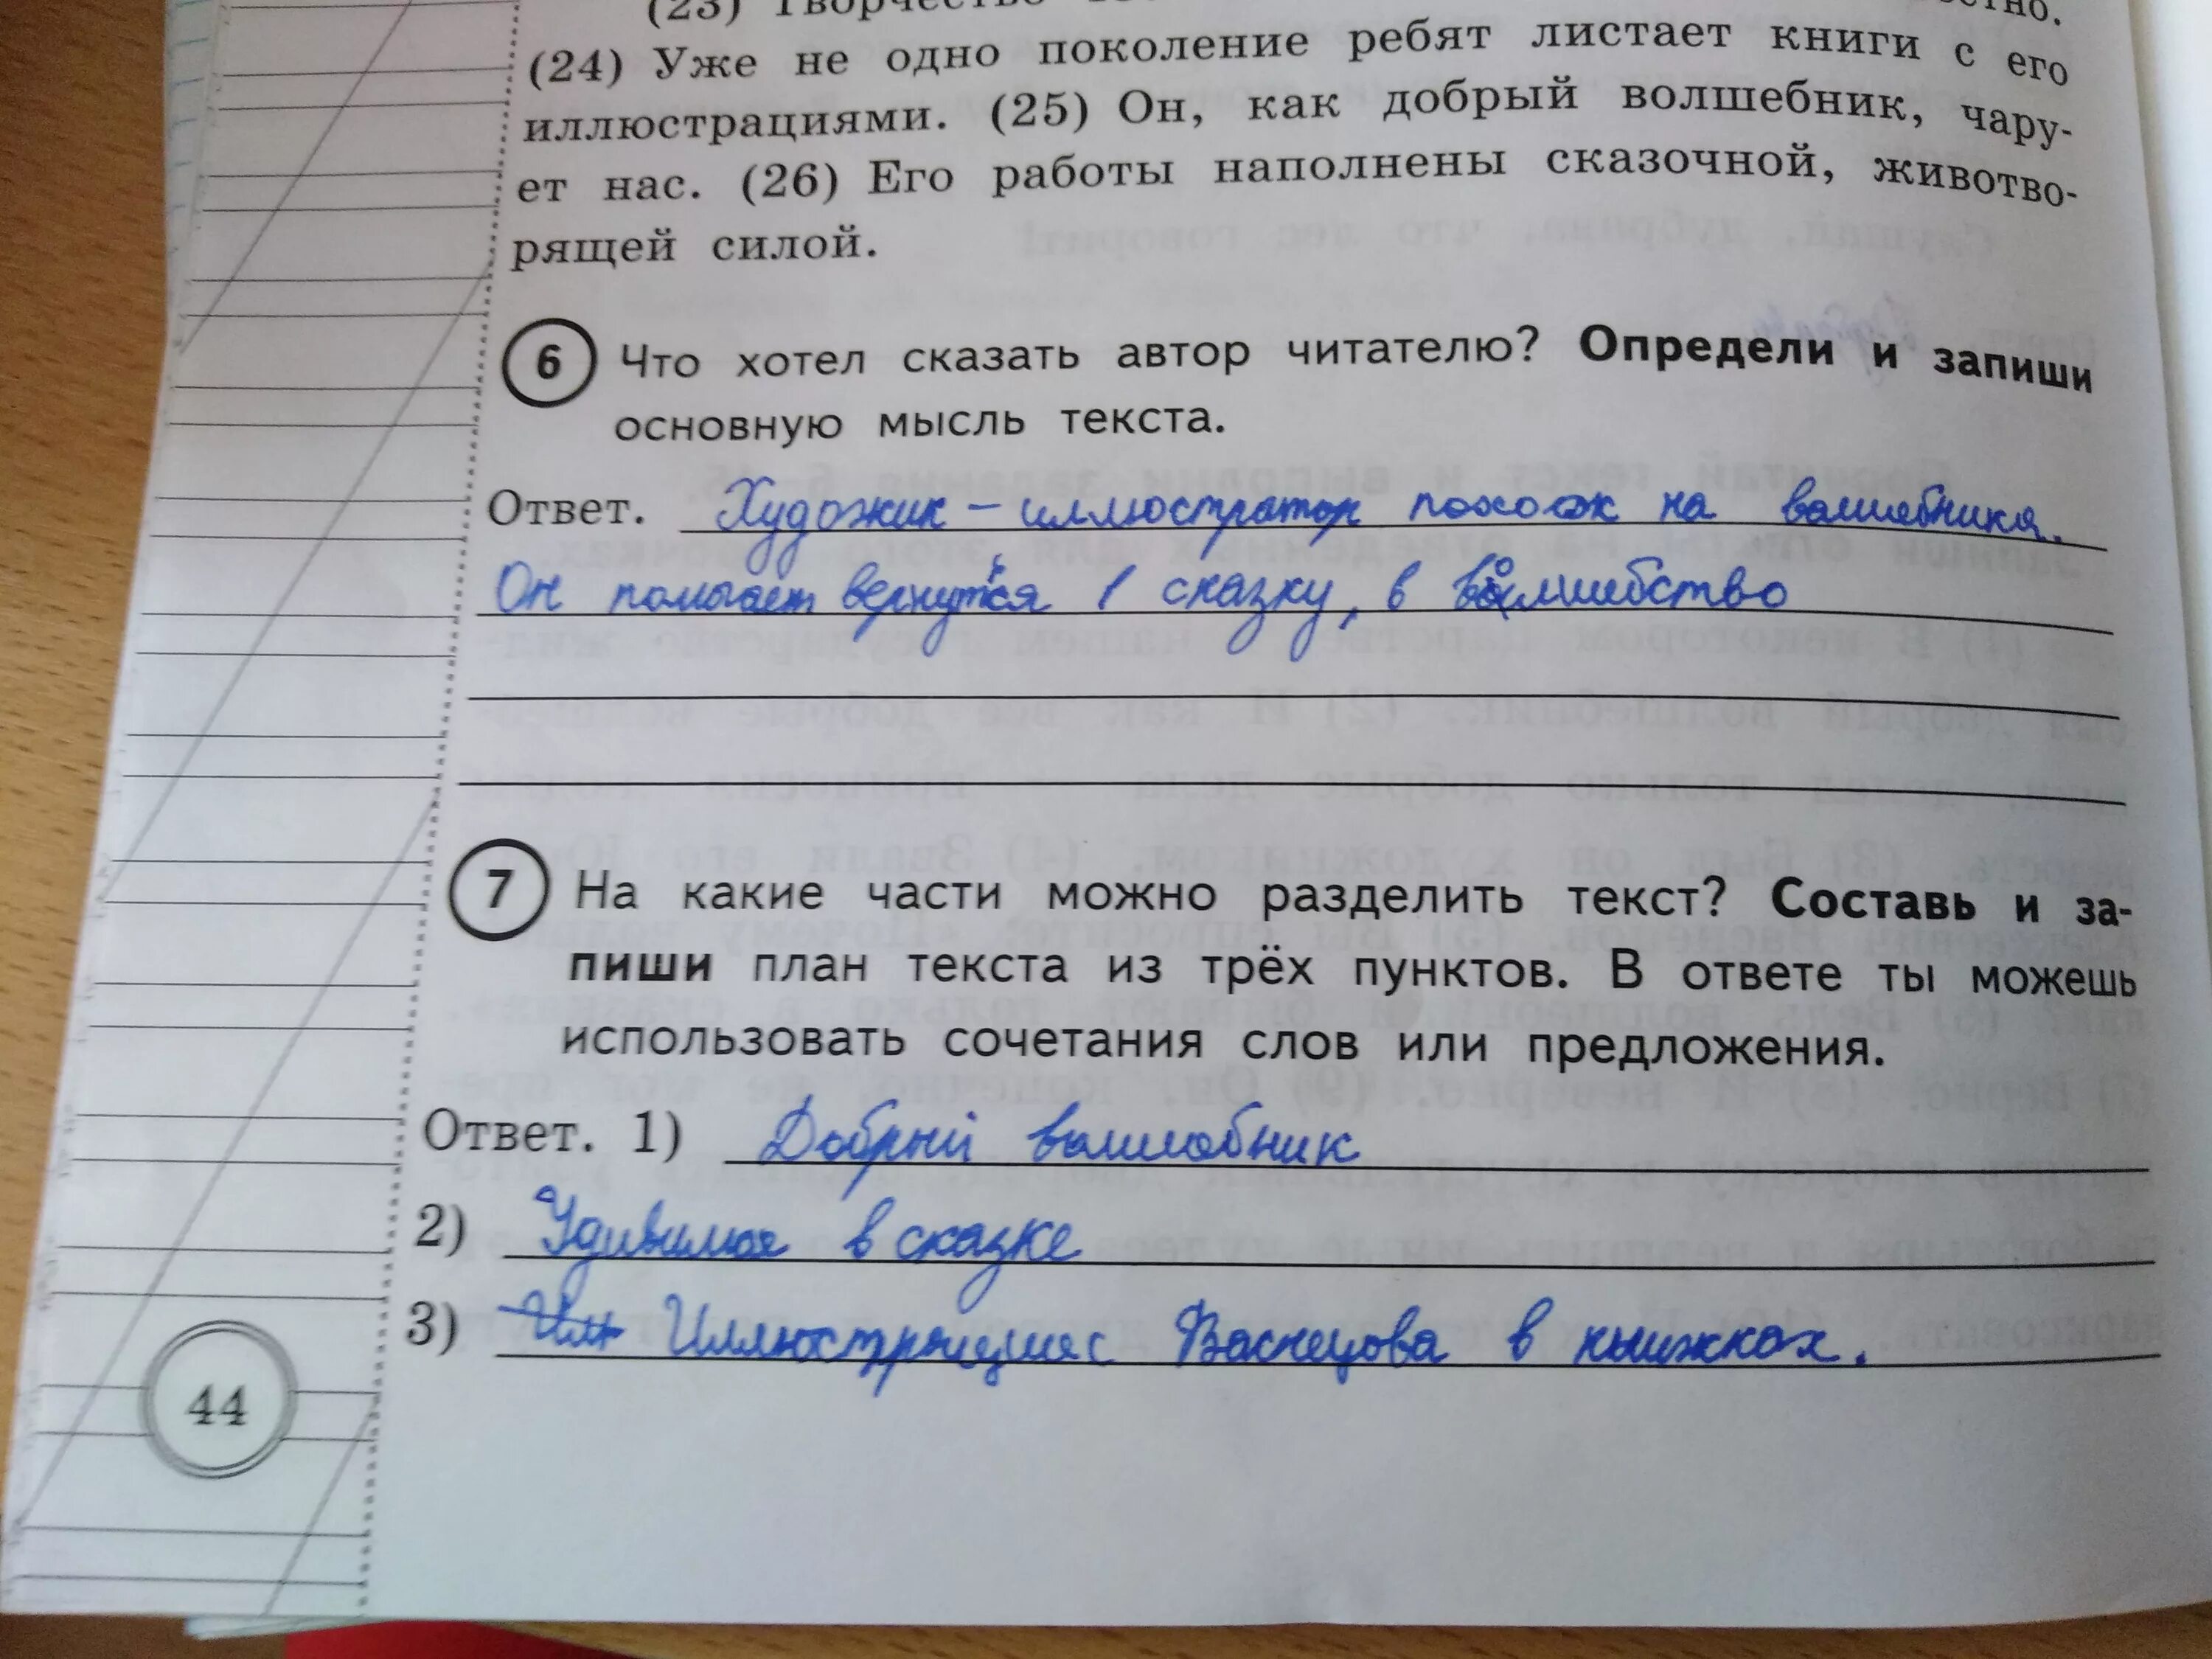 (23) Творчество
(24) Уже не одно поколение ребят листает книги с его
иллюстрациями. (25) Он, как добрый волшебник, чару-
ет нас. (26) Его работы наполнены сказочной, животво-
рящей силой.
6 Что хотел сказать автор читателю? Определи и запиши
основную мысль текста.
Ответ. Художик - иллюстратор похож на волшебника.
Он помогает вернуться в сказку, в волшебство
7 На какие части можно разделить текст? Составь и за-
пиши план текста из трёх пунктов. В ответе ты можешь
использовать сочетания слов или предложения.
Ответ. 1) Добрый волшебник
2) в сказке
3) Илл Васнецова в книжках.
44